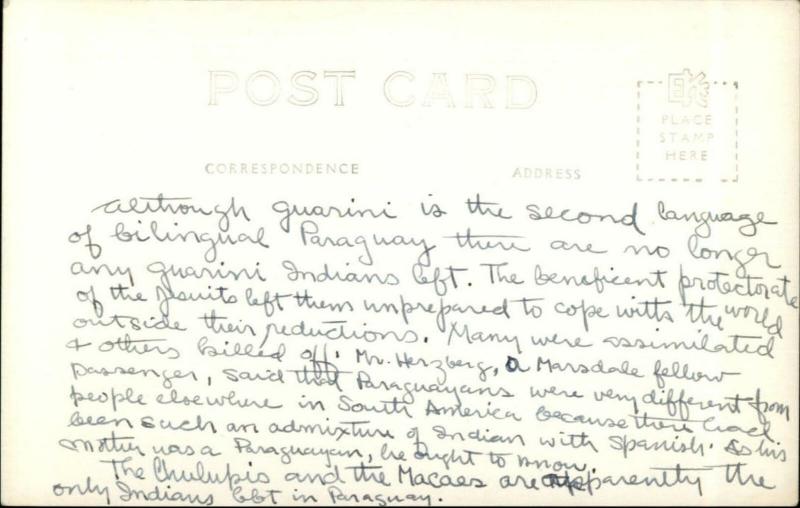 POST CARD
EKC
PLACE
STAMP
HERE
CORRESPONDENCE
ADDRESS
Although guarini is the second language
of bilingual Paraguay there are no longer
any guarini Indians left. The beneficent protectorate
of the Jesuits left them unprepared to cope with the world
outside their reductions. Many were assimilated
& others killed off. Mr. Herzberg, a Marsdale fellow
passenger, said that Paraguayans were very different from
people elsewhere in South America because there had
been such an admixture of Indian with Spanish. As his
mother was a Paraguayan, he ought to know.
The Chulupis and the Macaes are apparently the
only Indians left in Paraguay.